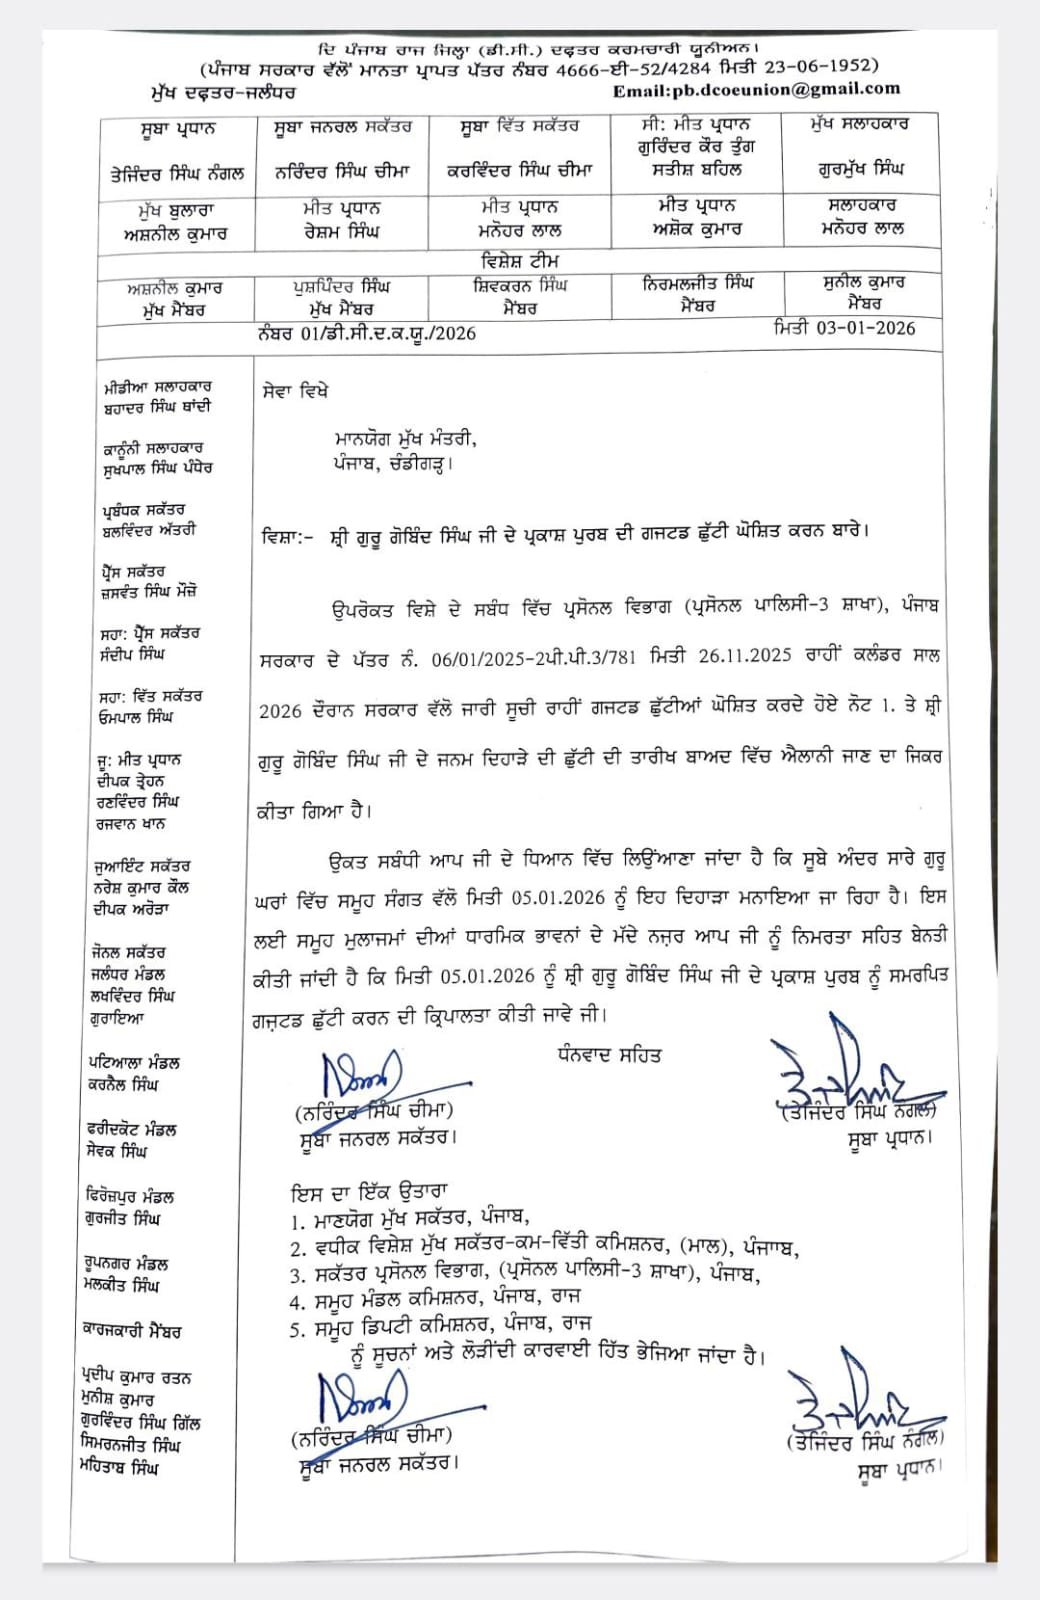 ਦਿ ਪੰਜਾਬ ਰਾਜ ਜਿਲ੍ਹਾ (ਡੀ.ਸੀ.) ਦਫ਼ਤਰ ਕਰਮਚਾਰੀ ਯੂਨੀਅਨ।
(ਪੰਜਾਬ ਸਰਕਾਰ ਵੱਲੋਂ ਮਾਨਤਾ ਪ੍ਰਾਪਤ ਪੱਤਰ ਨੰਬਰ 4666-ਈ-52/4284 ਮਿਤੀ 23-06-1952)
ਮੁੱਖ ਦਫ਼ਤਰ-ਜਲੰਧਰ Email:pb.dcoeunion@gmail.com
ਸੂਬਾ ਪ੍ਰਧਾਨ ਸੂਬਾ ਜਨਰਲ ਸਕੱਤਰ ਸੂਬਾ ਵਿੱਤ ਸਕੱਤਰ ਸੀ: ਮੀਤ ਪ੍ਰਧਾਨ ਮੁੱਖ ਸਲਾਹਕਾਰ
ਗੁਰਿੰਦਰ ਕੌਰ ਤੁੰਗ
ਤੇਜਿੰਦਰ ਸਿੰਘ ਨੰਗਲ ਨਰਿੰਦਰ ਸਿੰਘ ਚੀਮਾ ਕਰਵਿੰਦਰ ਸਿੰਘ ਚੀਮਾ ਸਤੀਸ਼ ਬਹਿਲ ਗੁਰਮੁੱਖ ਸਿੰਘ
ਮੁੱਖ ਬੁਲਾਰਾ ਮੀਤ ਪ੍ਰਧਾਨ ਮੀਤ ਪ੍ਰਧਾਨ ਮੀਤ ਪ੍ਰਧਾਨ ਸਲਾਹਕਾਰ
ਅਸ਼ਨੀਲ ਕੁਮਾਰ ਰੇਸ਼ਮ ਸਿੰਘ ਮਨੋਹਰ ਲਾਲ ਅਸ਼ੋਕ ਕੁਮਾਰ ਮਨੋਹਰ ਲਾਲ
ਵਿਸ਼ੇਸ਼ ਟੀਮ
ਅਸ਼ਨੀਲ ਕੁਮਾਰ ਪੁਸ਼ਪਿੰਦਰ ਸਿੰਘ ਸ਼ਿਵਕਰਨ ਸਿੰਘ ਨਿਰਮਲਜੀਤ ਸਿੰਘ ਸੁਨੀਲ ਕੁਮਾਰ
ਮੁੱਖ ਮੈਂਬਰ ਮੁੱਖ ਮੈਂਬਰ ਮੈਂਬਰ ਮੈਂਬਰ ਮੈਂਬਰ
ਨੰਬਰ 01/ਡੀ.ਸੀ.ਦ.ਕ.ਯੂ./2026 ਮਿਤੀ 03-01-2026
ਮੀਡੀਆ ਸਲਾਹਕਾਰ
ਬਹਾਦਰ ਸਿੰਘ ਥਾਂਦੀ
ਕਾਨੂੰਨੀ ਸਲਾਹਕਾਰ
ਸੁਖਪਾਲ ਸਿੰਘ ਪੰਧੇਰ
ਪ੍ਰਬੰਧਕ ਸਕੱਤਰ
ਬਲਵਿੰਦਰ ਅੱਤਰੀ
ਪ੍ਰੈੱਸ ਸਕੱਤਰ
ਜ਼ਸਵੰਤ ਸਿੰਘ ਮੌਜ਼ੋ
ਸਹਾ: ਪ੍ਰੈੱਸ ਸਕੱਤਰ
ਸੰਦੀਪ ਸਿੰਘ
ਸਹਾ: ਵਿੱਤ ਸਕੱਤਰ
ਓਮਪਾਲ ਸਿੰਘ
ਜੂ: ਮੀਤ ਪ੍ਰਧਾਨ
ਦੀਪਕ ਤ੍ਰੇਹਨ
ਰਣਵਿੰਦਰ ਸਿੰਘ
ਰਜਵਾਨ ਖਾਨ
ਜੁਆਇੰਟ ਸਕੱਤਰ
ਨਰੇਸ਼ ਕੁਮਾਰ ਕੌਲ
ਦੀਪਕ ਅਰੋੜਾ
ਜੋਨਲ ਸਕੱਤਰ
ਜਲੰਧਰ ਮੰਡਲ
ਲਖਵਿੰਦਰ ਸਿੰਘ
ਗੁਰਾਇਆ
ਪਟਿਆਲਾ ਮੰਡਲ
ਕਰਨੈਲ ਸਿੰਘ
ਫਰੀਦਕੋਟ ਮੰਡਲ
ਸੇਵਕ ਸਿੰਘ
ਫਿਰੋਜ਼ਪੁਰ ਮੰਡਲ
ਗੁਰਜੀਤ ਸਿੰਘ
ਰੂਪਨਗਰ ਮੰਡਲ
ਮਲਕੀਤ ਸਿੰਘ
ਕਾਰਜਕਾਰੀ ਮੈਂਬਰ
ਪ੍ਰਦੀਪ ਕੁਮਾਰ ਰਤਨ
ਮੁਨੀਸ਼ ਕੁਮਾਰ
ਗੁਰਵਿੰਦਰ ਸਿੰਘ ਗਿੱਲ
ਸਿਮਰਨਜੀਤ ਸਿੰਘ
ਮਹਿਤਾਬ ਸਿੰਘ
ਸੇਵਾ ਵਿਖੇ
ਮਾਨਯੋਗ ਮੁੱਖ ਮੰਤਰੀ,
ਪੰਜਾਬ, ਚੰਡੀਗੜ੍ਹ।
ਵਿਸ਼ਾ:- ਸ਼੍ਰੀ ਗੁਰੂ ਗੋਬਿੰਦ ਸਿੰਘ ਜੀ ਦੇ ਪ੍ਰਕਾਸ਼ ਪੁਰਬ ਦੀ ਗਜਟਡ ਛੁੱਟੀ ਘੋਸ਼ਿਤ ਕਰਨ ਬਾਰੇ।
ਉਪਰੋਕਤ ਵਿਸ਼ੇ ਦੇ ਸਬੰਧ ਵਿੱਚ ਪ੍ਰਸੋਨਲ ਵਿਭਾਗ (ਪ੍ਰਸੋਨਲ ਪਾਲਿਸੀ-3 ਸ਼ਾਖਾ), ਪੰਜਾਬ
ਸਰਕਾਰ ਦੇ ਪੱਤਰ ਨੰ. 06/01/2025-2ਪੀ.ਪੀ.3/781 ਮਿਤੀ 26.11.2025 ਰਾਹੀਂ ਕਲੰਡਰ ਸਾਲ
2026 ਦੌਰਾਨ ਸਰਕਾਰ ਵੱਲੋ ਜਾਰੀ ਸੂਚੀ ਰਾਹੀਂ ਗਜਟਡ ਛੁੱਟੀਆਂ ਘੋਸ਼ਿਤ ਕਰਦੇ ਹੋਏ ਨੋਟ 1. ਤੇ ਸ਼੍ਰੀ
ਗੁਰੂ ਗੋਬਿੰਦ ਸਿੰਘ ਜੀ ਦੇ ਜਨਮ ਦਿਹਾੜੇ ਦੀ ਛੁੱਟੀ ਦੀ ਤਾਰੀਖ ਬਾਅਦ ਵਿੱਚ ਐਲਾਨੀ ਜਾਣ ਦਾ ਜਿਕਰ
ਕੀਤਾ ਗਿਆ ਹੈ।
ਉਕਤ ਸਬੰਧੀ ਆਪ ਜੀ ਦੇ ਧਿਆਨ ਵਿੱਚ ਲਿਉਂਆਣਾ ਜਾਂਦਾ ਹੈ ਕਿ ਸੂਬੇ ਅੰਦਰ ਸਾਰੇ ਗੁਰੂ
ਘਰਾਂ ਵਿੱਚ ਸਮੂਹ ਸੰਗਤ ਵੱਲੋ ਮਿਤੀ 05.01.2026 ਨੂੰ ਇਹ ਦਿਹਾੜਾ ਮਨਾਇਆ ਜਾ ਰਿਹਾ ਹੈ। ਇਸ
ਲਈ ਸਮੂਹ ਮੁਲਾਜਮਾਂ ਦੀਆਂ ਧਾਰਮਿਕ ਭਾਵਨਾਂ ਦੇ ਮੱਦੇ ਨਜ਼ਰ ਆਪ ਜੀ ਨੂੰ ਨਿਮਰਤਾ ਸਹਿਤ ਬੇਨਤੀ
ਕੀਤੀ ਜਾਂਦੀ ਹੈ ਕਿ ਮਿਤੀ 05.01.2026 ਨੂੰ ਸ਼੍ਰੀ ਗੁਰੂ ਗੋਬਿੰਦ ਸਿੰਘ ਜੀ ਦੇ ਪ੍ਰਕਾਸ਼ ਪੁਰਬ ਨੂੰ ਸਮਰਪਿਤ
ਗਜ਼ਟਡ ਛੁੱਟੀ ਕਰਨ ਦੀ ਕ੍ਰਿਪਾਲਤਾ ਕੀਤੀ ਜਾਵੇ ਜੀ।
ਧੰਨਵਾਦ ਸਹਿਤ
(ਨਰਿੰਦਰ ਸਿੰਘ ਚੀਮਾ) (ਤੇਜਿੰਦਰ ਸਿੰਘ ਨੰਗਲ)
ਸੂਬਾ ਜਨਰਲ ਸਕੱਤਰ। ਸੂਬਾ ਪ੍ਰਧਾਨ।
ਇਸ ਦਾ ਇੱਕ ਉਤਾਰਾ
1. ਮਾਣਯੋਗ ਮੁੱਖ ਸਕੱਤਰ, ਪੰਜਾਬ,
2. ਵਧੀਕ ਵਿਸ਼ੇਸ਼ ਮੁੱਖ ਸਕੱਤਰ-ਕਮ-ਵਿੱਤੀ ਕਮਿਸ਼ਨਰ, (ਮਾਲ), ਪੰਜਾਾਬ,
3. ਸਕੱਤਰ ਪ੍ਰਸੋਨਲ ਵਿਭਾਗ, (ਪ੍ਰਸੋਨਲ ਪਾਲਿਸੀ-3 ਸ਼ਾਖਾ), ਪੰਜਾਬ,
4. ਸਮੂਹ ਮੰਡਲ ਕਮਿਸ਼ਨਰ, ਪੰਜਾਬ, ਰਾਜ
5. ਸਮੂਹ ਡਿਪਟੀ ਕਮਿਸ਼ਨਰ, ਪੰਜਾਬ, ਰਾਜ
ਨੂੰ ਸੂਚਨਾਂ ਅਤੇ ਲੋੜੀਂਦੀ ਕਾਰਵਾਈ ਹਿੱਤ ਭੇਜਿਆ ਜਾਂਦਾ ਹੈ।
(ਨਰਿੰਦਰ ਸਿੰਘ ਚੀਮਾ) (ਤੇਜਿੰਦਰ ਸਿੰਘ ਨੰਗਲ)
ਸੂਬਾ ਜਨਰਲ ਸਕੱਤਰ। ਸੂਬਾ ਪ੍ਰਧਾਨ।